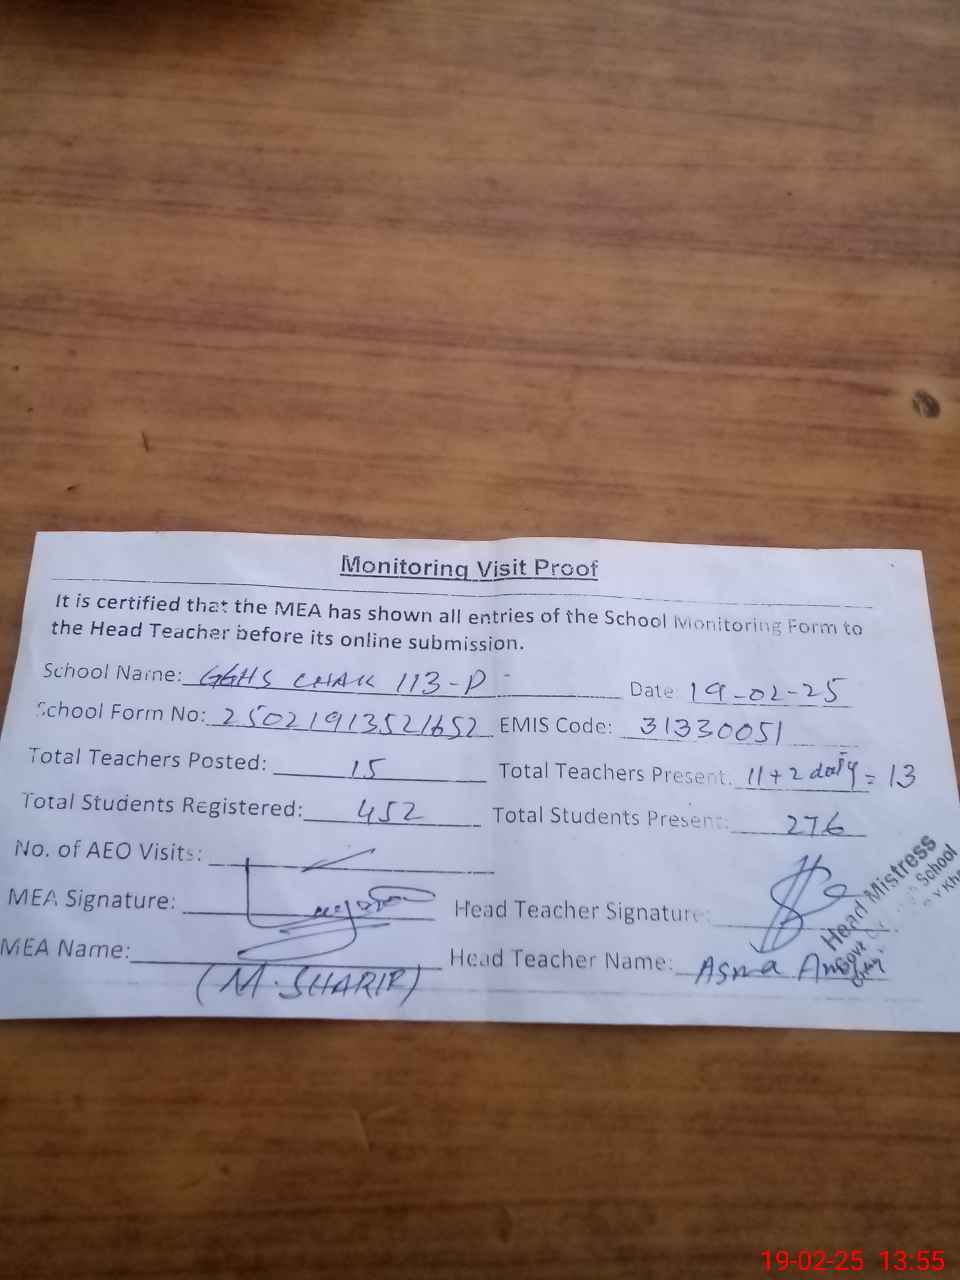 Monitoring Visit Proof
It is certified that the MEA has shown all entries of the School Monitoring Form to
the Head Teacher before its online submission.
School Name: GGHS CHAK 113-P Date 19-02-25
School Form No: 25021913521652 EMIS Code: 31330051
Total Teachers Posted: 15 Total Teachers Present: 11+2 duty = 13
Total Students Registered: 452 Total Students Present: 276
No. of AEO Visits:
MEA Signature: Head Teacher Signature:
MEA Name: Head Teacher Name: Asma
(M. SHARIF)
Head Mistress
School
19-02-25 13:55